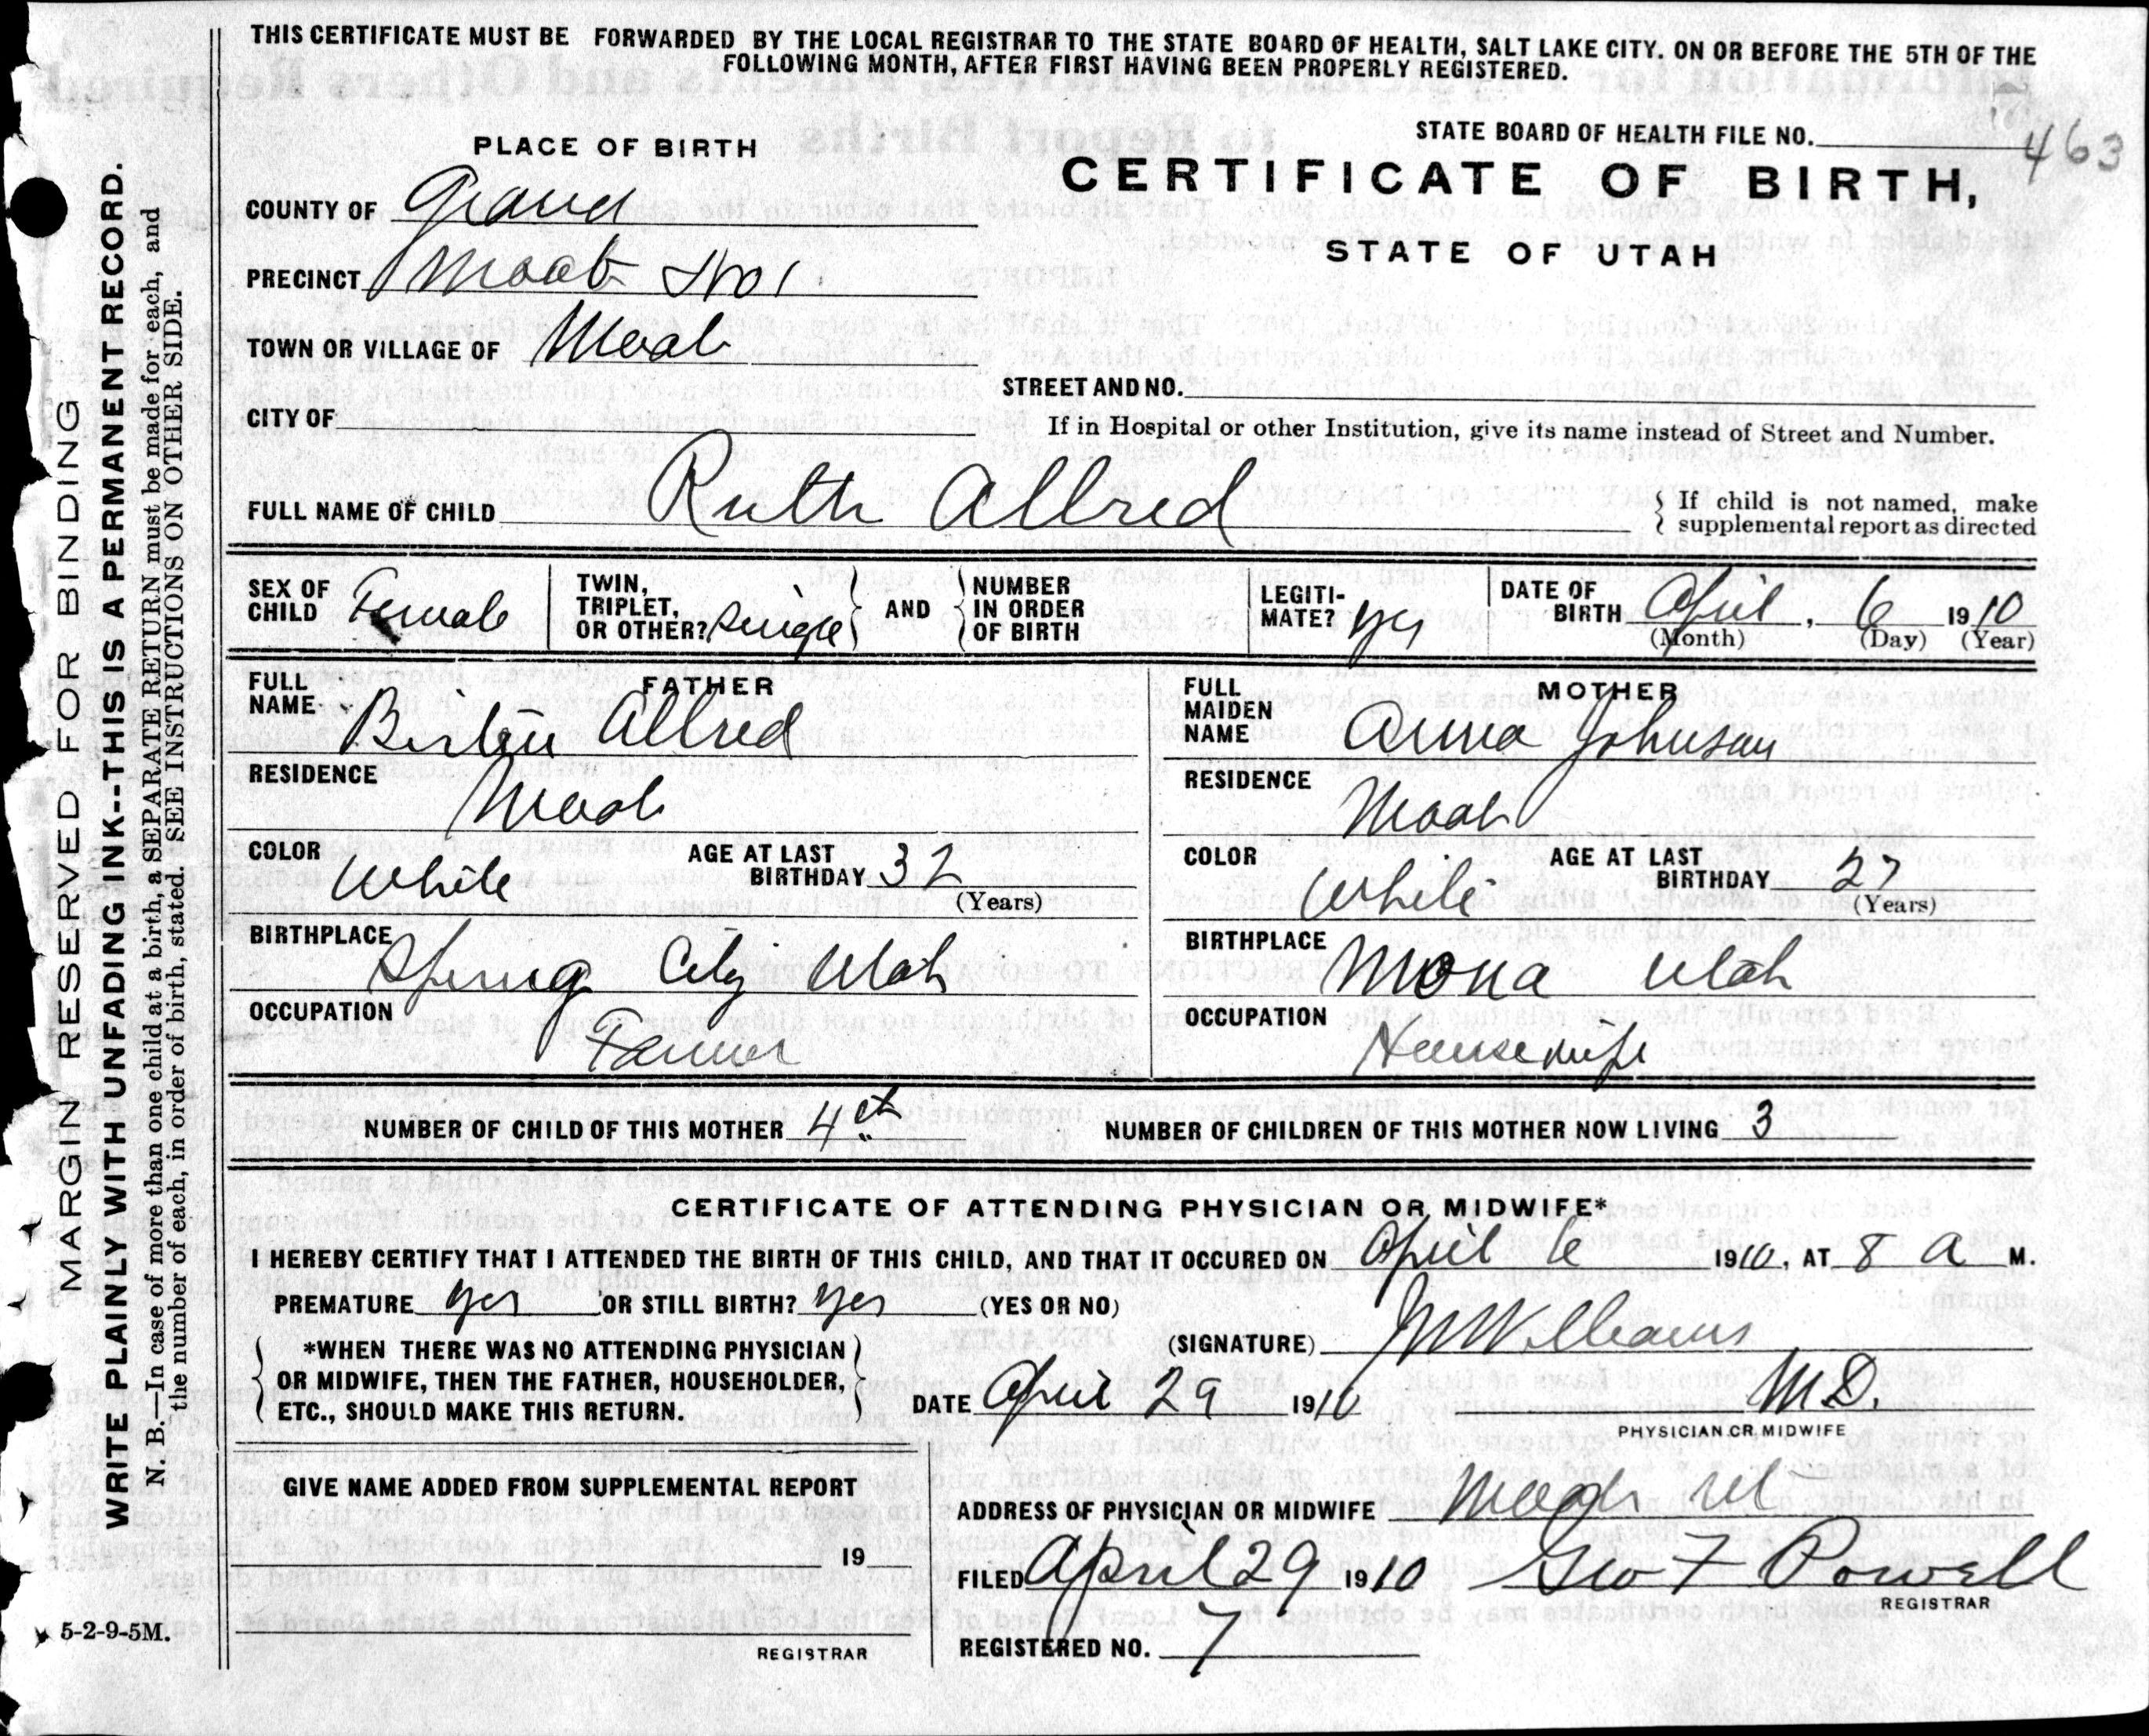 THIS CERTIFICATE MUST BE FORWARDED BY THE LOCAL REGISTRAR TO THE STATE BOARD OF HEALTH, SALT LAKE CITY. ON OR BEFORE THE 5TH OF THE
FOLLOWING MONTH, AFTER FIRST HAVING BEEN PROPERLY REGISTERED.
STATE BOARD OF HEALTH FILE NO. 463
PLACE OF BIRTH
CERTIFICATE OF BIRTH,
STATE OF UTAH
COUNTY OF Grand
PRECINCT Moab No 1
TOWN OR VILLAGE OF Moab
STREET AND NO.
CITY OF
If in Hospital or other Institution, give its name instead of Street and Number.
FULL NAME OF CHILD Ruth Allred
{ If child is not named, make
supplemental report as directed
SEX OF CHILD Female
TWIN, TRIPLET, OR OTHER? Single } AND { NUMBER IN ORDER OF BIRTH
LEGITIMATE? yes
DATE OF BIRTH April, 6 1910
(Month) (Day) (Year)
FATHER
FULL NAME Allred
RESIDENCE Moab
COLOR White
AGE AT LAST BIRTHDAY 32
(Years)
BIRTHPLACE Spring City Utah
OCCUPATION Farmer
MOTHER
FULL MAIDEN NAME Anna Johnson
RESIDENCE Moab
COLOR White
AGE AT LAST BIRTHDAY 27
(Years)
BIRTHPLACE Mona Utah
OCCUPATION Housewife
NUMBER OF CHILD OF THIS MOTHER 4th
NUMBER OF CHILDREN OF THIS MOTHER NOW LIVING 3
CERTIFICATE OF ATTENDING PHYSICIAN OR MIDWIFE*
I HEREBY CERTIFY THAT I ATTENDED THE BIRTH OF THIS CHILD, AND THAT IT OCCURED ON April 6 1910, AT 8 A M.
PREMATURE yes OR STILL BIRTH? yes (YES OR NO)
{ *WHEN THERE WAS NO ATTENDING PHYSICIAN
OR MIDWIFE, THEN THE FATHER, HOUSEHOLDER,
ETC., SHOULD MAKE THIS RETURN. }
(SIGNATURE) Williams
M.D.
PHYSICIAN OR MIDWIFE
DATE April 29 1910
GIVE NAME ADDED FROM SUPPLEMENTAL REPORT
19
REGISTRAR
ADDRESS OF PHYSICIAN OR MIDWIFE Moab Ut
FILED April 29 1910 Geo F Powell
REGISTRAR
REGISTERED NO. 7
MARGIN RESERVED FOR BINDING
WRITE PLAINLY WITH UNFADING INK--THIS IS A PERMANENT RECORD.
N. B.—In case of more than one child at a birth, a SEPARATE RETURN must be made for each, and
the number of each, in order of birth, stated. SEE INSTRUCTIONS ON OTHER SIDE.
5-2-9-5M.